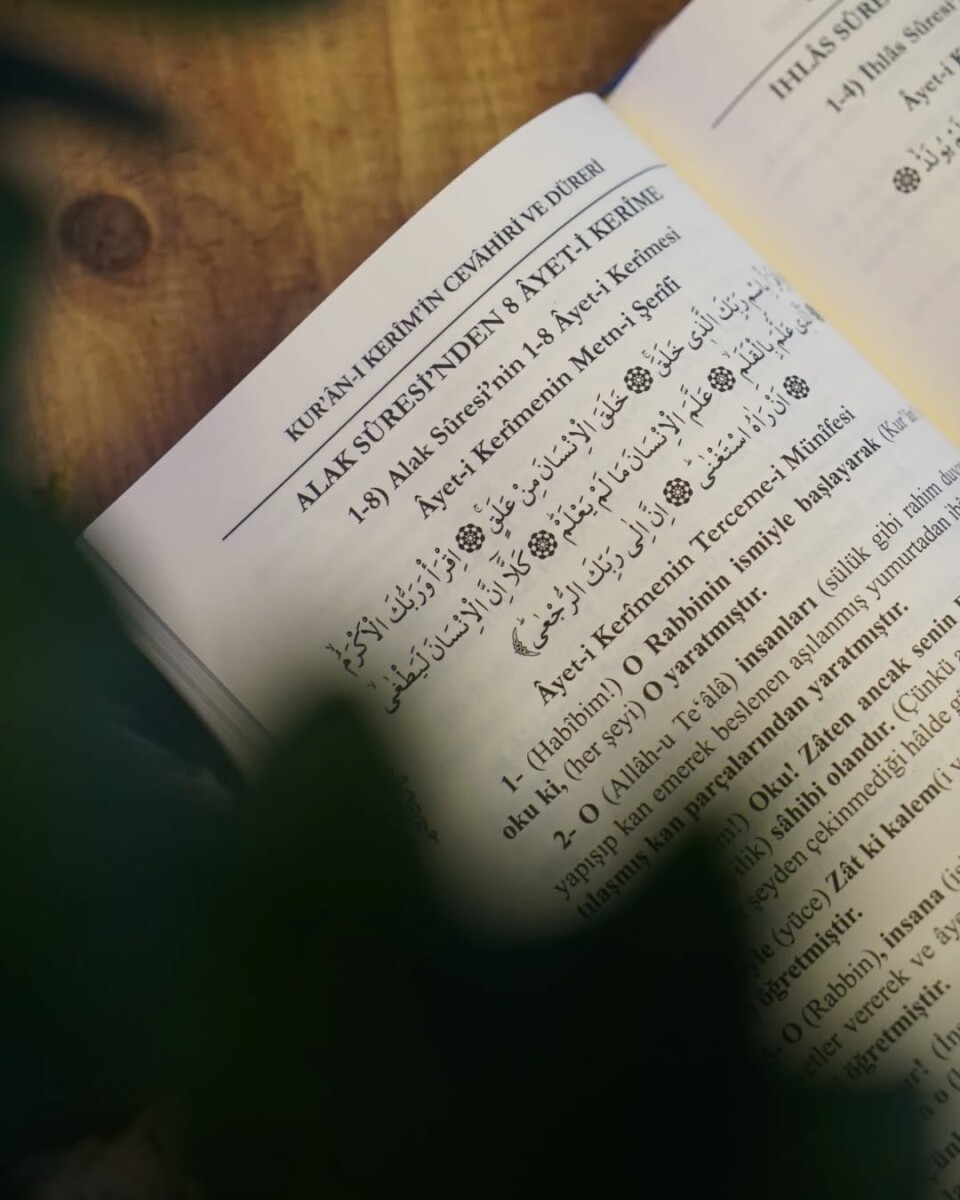 KUR'ÂN-I KERÎM'İN CEVÂHİRİ VE DÜRERİ
ALAK SÛRESİ'NDEN 8 ÂYET-İ KERÎME
1-8) Alak Sûresi'nin 1-8 Âyet-i Kerîmesi
Âyet-i Kerîmenin Metn-i Şerîfi
بِاسْمِ رَبِّكَ الَّذٖى خَلَقَۚ ۝ خَلَقَ الْاِنْسَانَ مِنْ عَلَقٍۚ ۝ اِقْرَأْ وَرَبُّكَ الْاَكْرَمُۙ
عَلَّمَ بِالْقَلَمِۙ ۝ عَلَّمَ الْاِنْسَانَ مَا لَمْ يَعْلَمْؕ ۝ كَلَّٓا اِنَّ الْاِنْسَانَ لَيَطْغٰىۙ
۝ اَنْ رَاٰهُ اسْتَغْنٰىؕ ۝ اِنَّ اِلٰى رَبِّكَ الرُّجْعٰىؕ
Âyet-i Kerîmenin Terceme-i Münîfesi
1- (Habîbim!) O Rabbinin ismiyle başlayarak (Kur'ân
oku ki, (her şeyi) O yaratmıştır.
2- O (Allâh-u Te'âlâ) insanları (sülük gibi rahim
yapışıp kan emerek beslenen aşılanmış yumurtadan
tılaşmış kan parçalarından yaratmıştır.
Oku! Zâten ancak senin
sâhibi olandır. (Çünkü
şeyden çekinmediği hâlde
(yüce) Zât ki kalem(i
öğretmiştir.
O (Rabbin), insana
vererek ve
öğretmiştir.
IHLÂS SÛRE
1-4) Ihlâs Sûresi
Âyet-i
يُولَدْ ۝